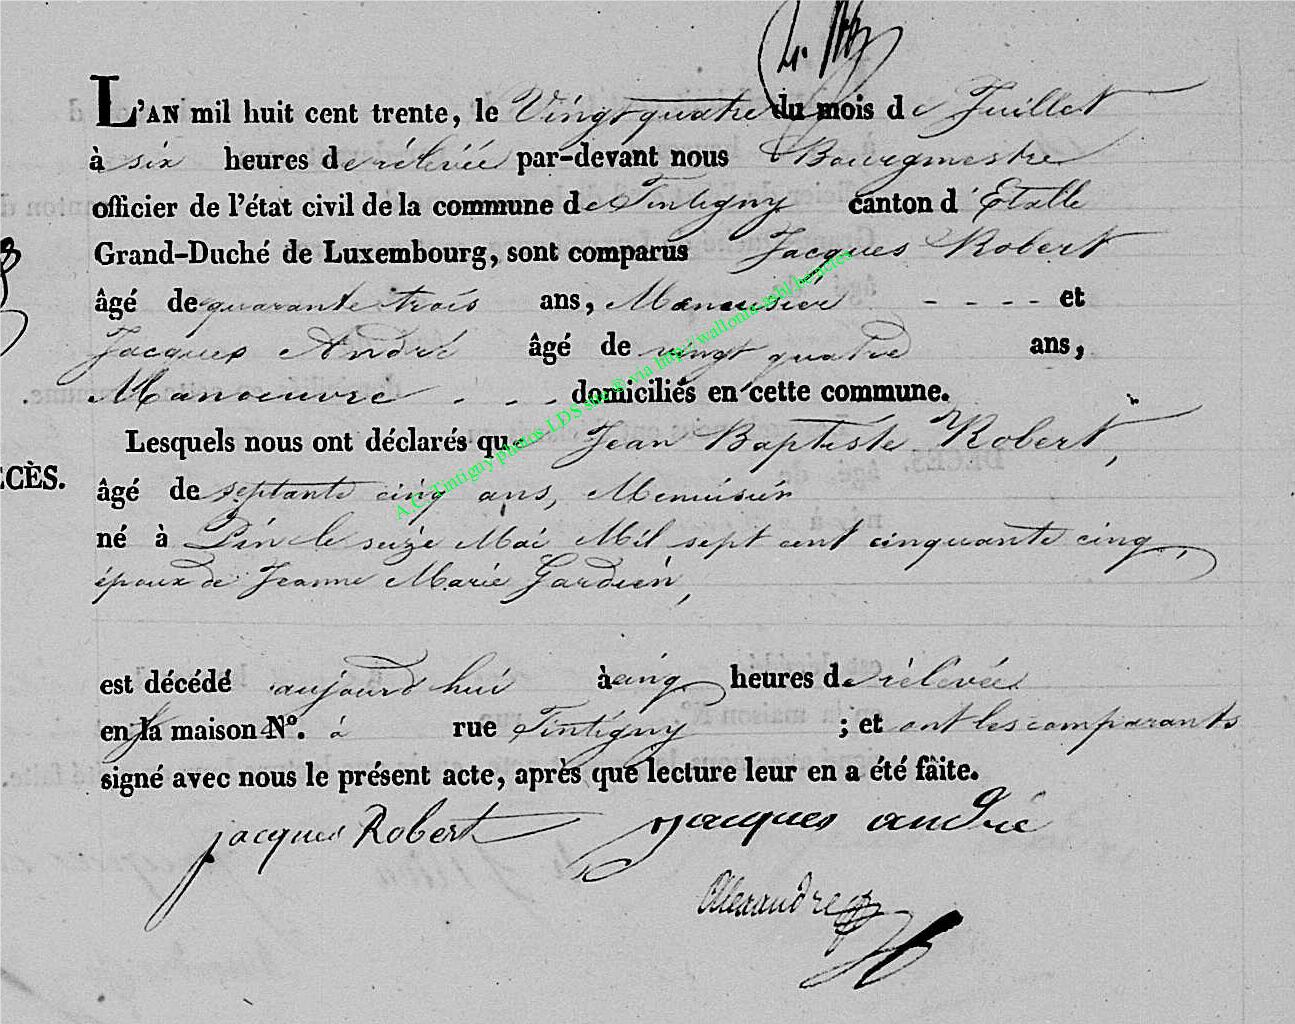 L'AN mil huit cent trente, le Vingt quatre du mois de Juillet
à six heures de rélévée par-devant nous Bourgmestre
officier de l'état civil de la commune de Tintigny canton d'Etalle
Grand-Duché de Luxembourg, sont comparus Jacques Robert
âgé de quarante trois ans, Menuisier - - - - et
Jacques André âgé de vingt quatre ans,
Manoeuvre - - - domiciliés en cette commune.
Lesquels nous ont déclarés que Jean Baptiste Robert,
CÈS.
âgé de septante cinq ans, Menuisier
né à Pin le seize Mai Mil sept cent cinquante cinq,
époux de Jeanne Marie Gardien,
est décédé aujourd'hui à cinq heures de rélévée
en la maison N°. à rue Tintigny ; et ont les comparants
signé avec nous le présent acte, après que lecture leur en a été fâite.
jacques Robert jacques andré
Alexandre
A.C. Tintigny photos LDS site © via http://wallonia-asbl.be/actes